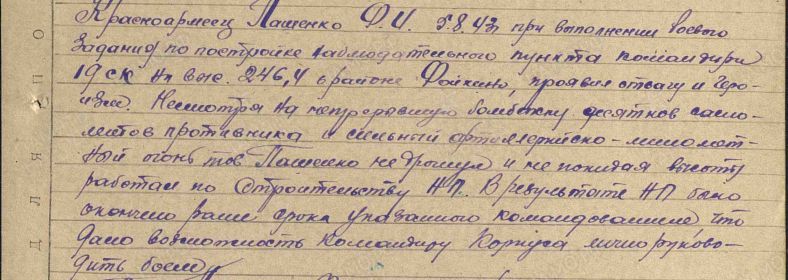 Красноармеец Пашенко Ф.И. 5.8.43г при выполнении боевого
задания по постройке наблюдательного пункта командира
19 ск на выс. 246,4 в районе Фойкино, проявил отвагу и геро-
изм. Несмотря на непрерывную бомбежку десятков само-
летов противника и сильный артиллерийско-миномет-
ный огонь тов Пашенко не дрогнул и не покидая высоту
работал по строительству НП. В результате НП было
окончено раньше срока указанного командованием, что
дало возможность командиру Корпуса лично руково-
дить боем